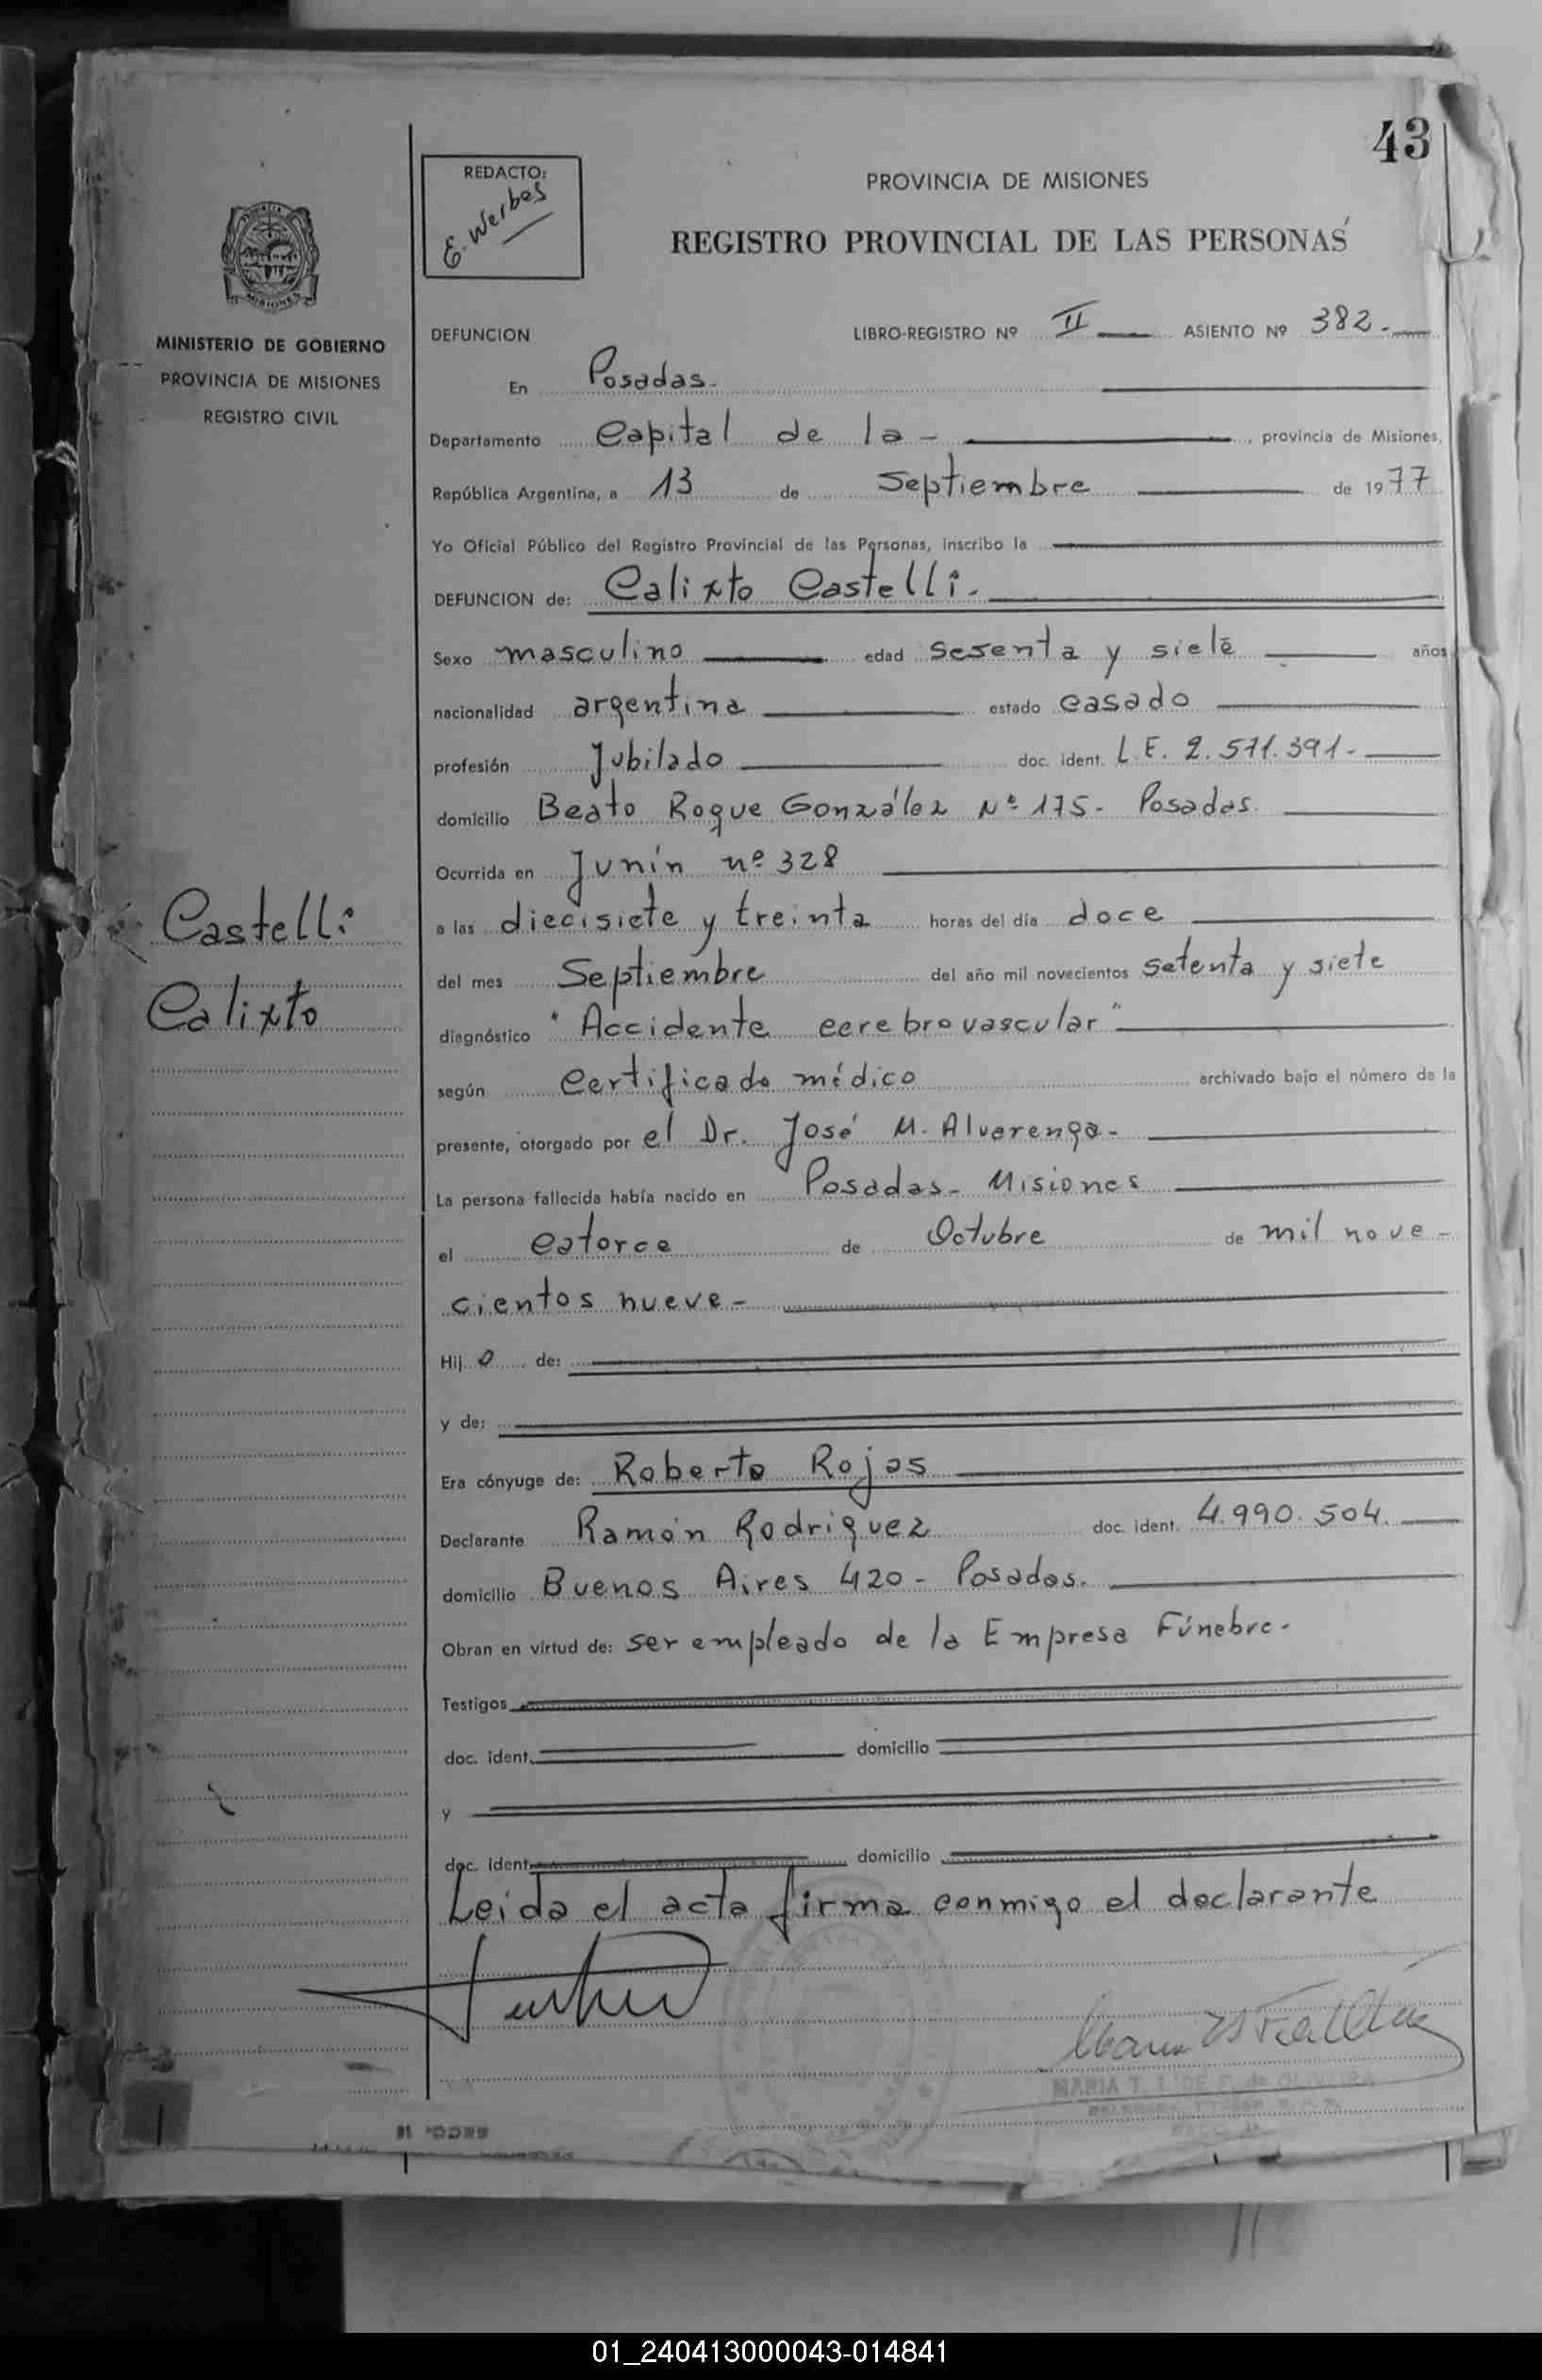 43
REDACTO:
E. Werbes
PROVINCIA DE MISIONES
REGISTRO PROVINCIAL DE LAS PERSONAS
MISIONES
MINISTERIO DE GOBIERNO
PROVINCIA DE MISIONES
REGISTRO CIVIL
DEFUNCION LIBRO-REGISTRO Nº II ASIENTO Nº 382.-
En Posadas.
Departamento Capital de la - , provincia de Misiones,
República Argentina, a 13 de Septiembre de 1977
Yo Oficial Público del Registro Provincial de las Personas, inscribo la
DEFUNCION de: Calixto Castelli.
Sexo masculino edad sesenta y siete años
nacionalidad argentina estado casado
profesión Jubilado doc. ident. L.E. 2.571.391-
domicilio Beato Roque González Nº 175- Posadas.
Ocurrida en Junín nº 328
Castelli
Calixto
a las diecisiete y treinta horas del día doce
del mes Septiembre del año mil novecientos setenta y siete
diagnóstico "Accidente cerebrovascular"
según Certificado médico archivado bajo el número de la
presente, otorgado por el Dr. José M. Alvarenga-
La persona fallecida había nacido en Posadas- Misiones
el catorce de Octubre de mil nove-
cientos nueve-
Hijo de:
y de:
Era cónyuge de: Roberta Rojas
Declarante Ramón Rodriguez doc. ident. 4.990.504.
domicilio Buenos Aires 420- Posadas.
Obran en virtud de: ser empleado de la Empresa Fúnebre-
Testigos
doc. ident. domicilio
y
doc. ident. domicilio
Leida el acta firma conmigo el declarante
MARIA T. DE F. de OLIVEIRA
01_240413000043-014841